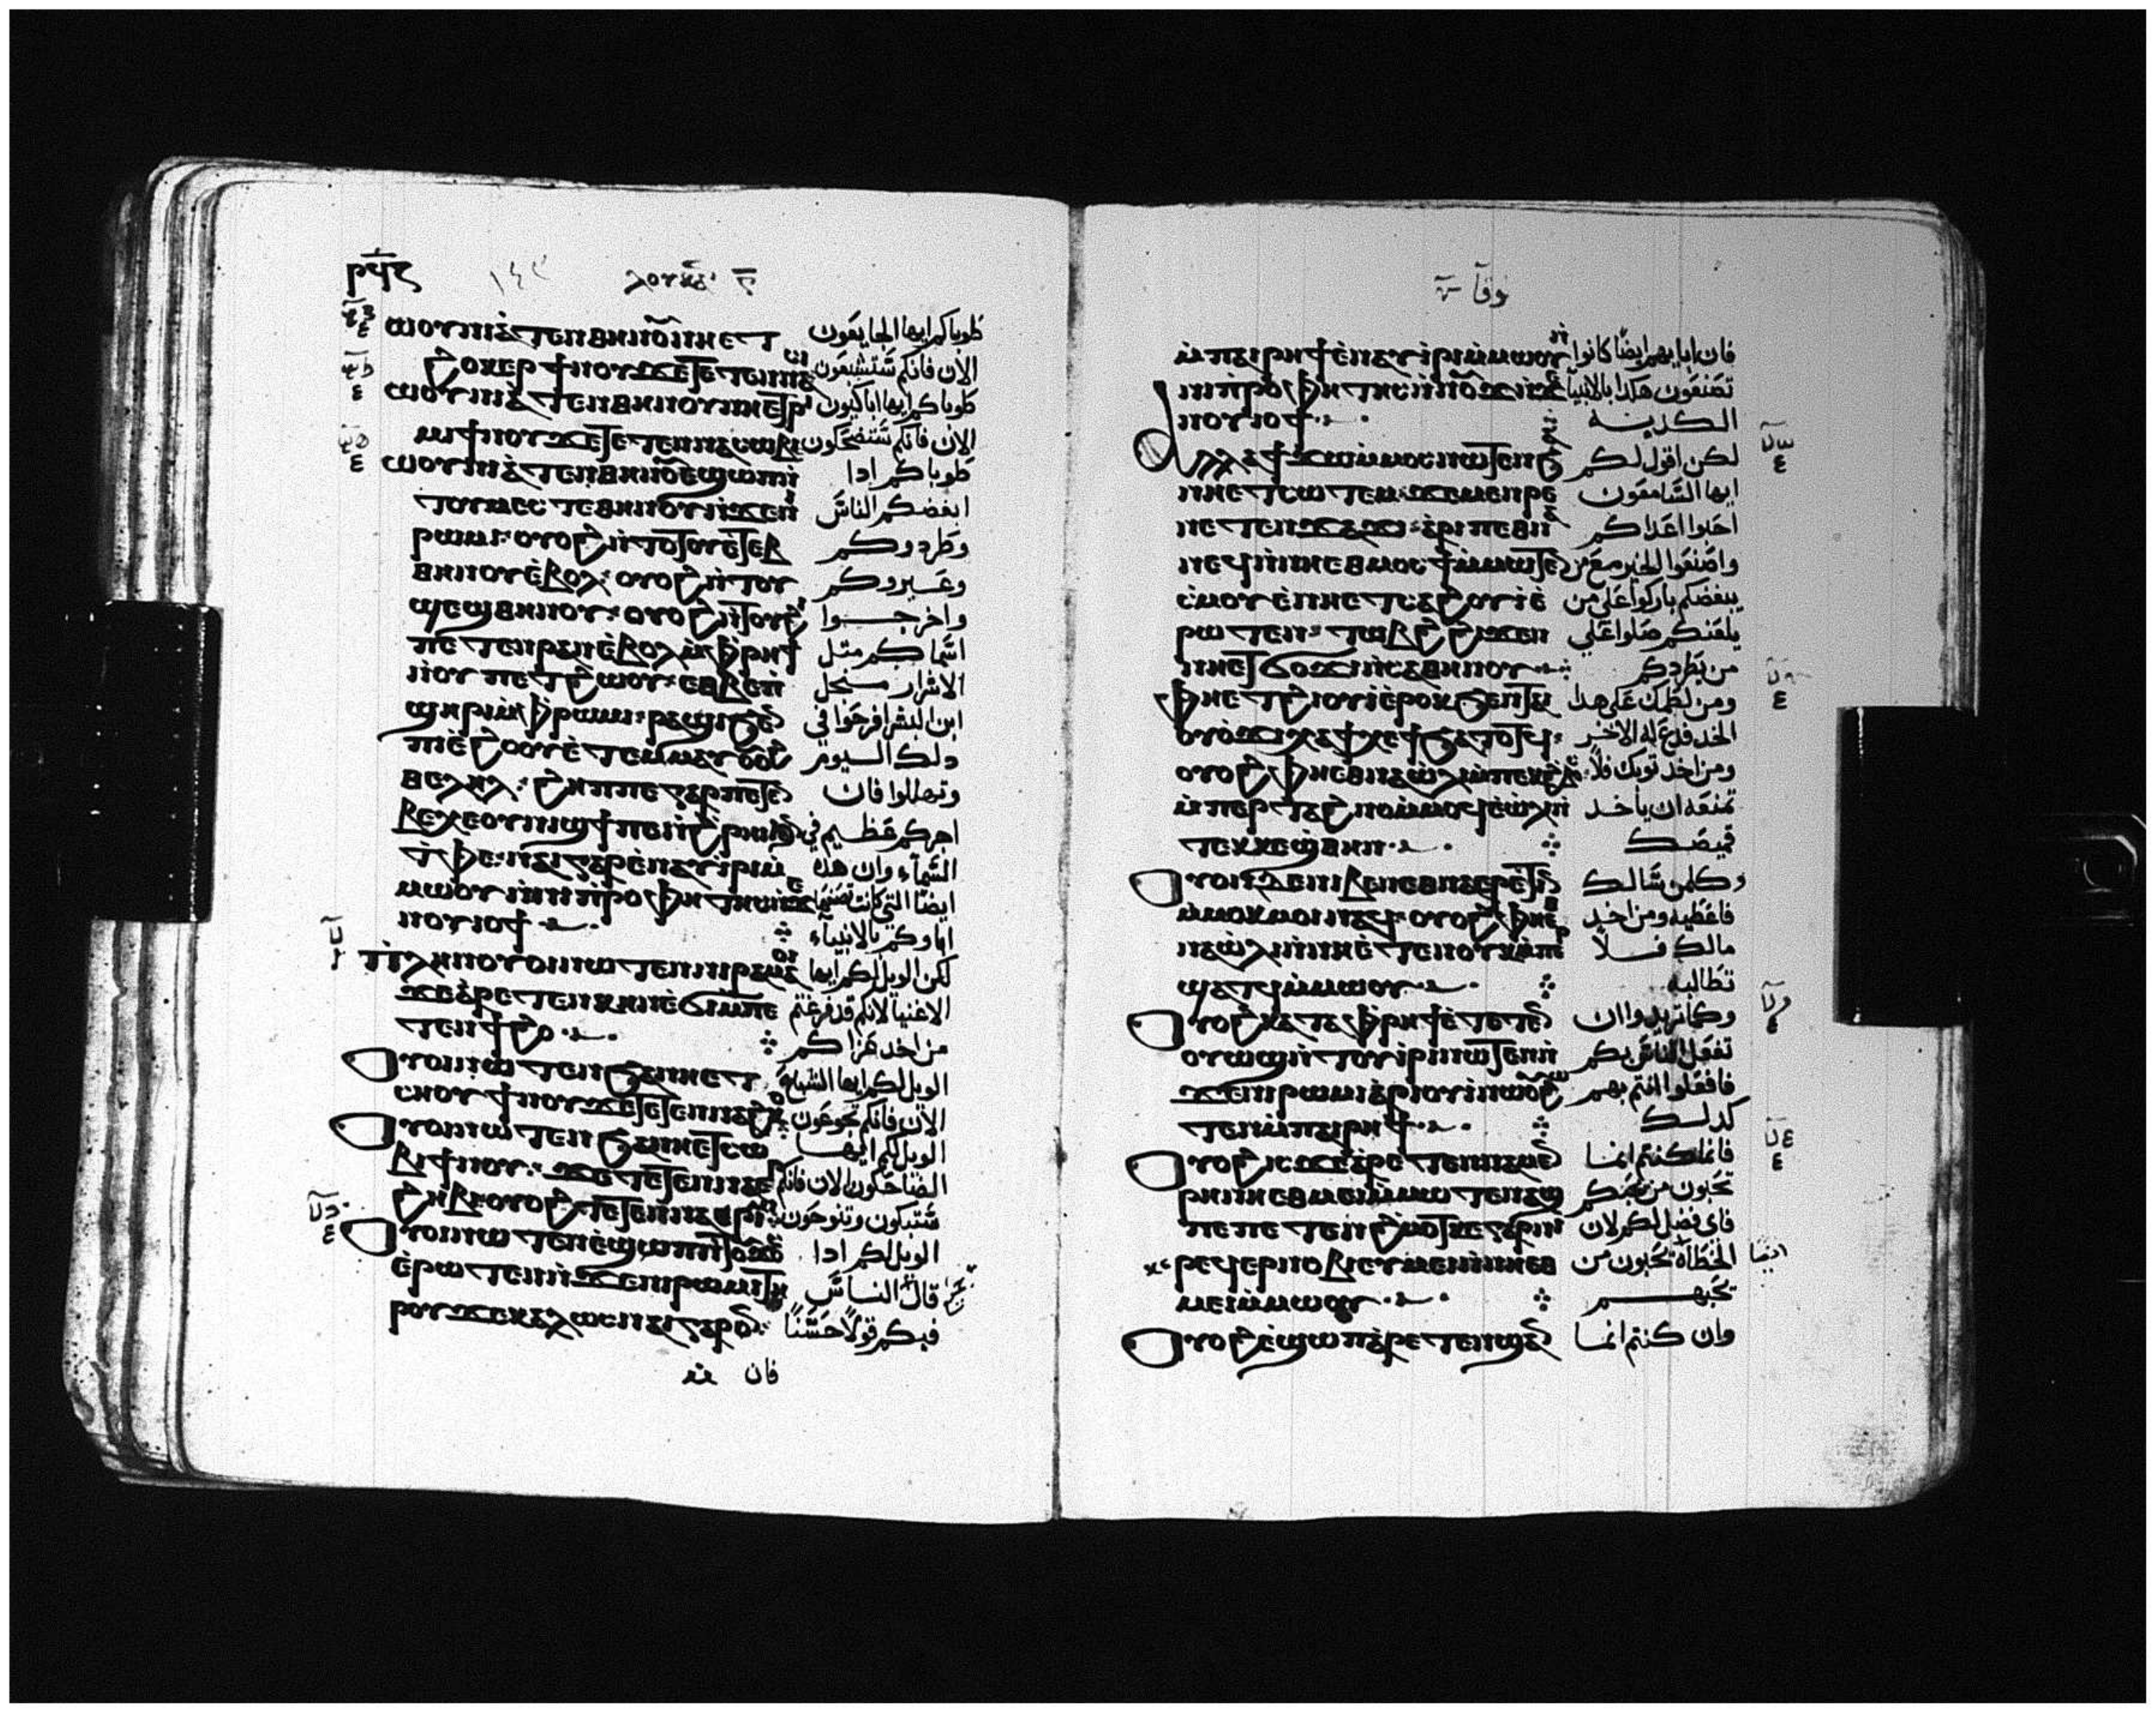 ⲣϥⲍ
ⲗⲟⲩⲕⲁ
ⲱⲟⲩⲛⲓⲁⲧⲉⲛⲑⲏⲛⲟⲩ ⲛⲏⲉⲧ
ϩⲟⲕⲉⲣ ϯⲛⲟⲩ ϫⲉ ⲧⲉⲧⲉⲛⲛⲁⲥⲓ
ⲱⲟⲩⲛⲓⲁⲧⲉⲛⲑⲏⲛⲟⲩ ⲛⲏⲉⲧⲣⲓ
ⲙⲓ ϯⲛⲟⲩ ϫⲉ ⲧⲉⲧⲉⲛⲛⲁⲥⲱⲃⲓ
ⲱⲟⲩⲛⲓⲁⲧⲉⲛⲑⲏⲛⲟⲩ ⲉϣⲱⲡ ⲛ
ⲧⲟⲩⲙⲉⲥⲧⲉ ⲑⲏⲛⲟⲩ ⲛϫⲉ ⲛⲓ
ⲣⲱⲙⲓ ⲟⲩⲟϩ ⲛⲧⲟⲩⲟⲩⲉⲧ
ⲑⲏⲛⲟⲩ ⲉⲃⲟⲗ ⲟⲩⲟϩ ⲛⲧⲟⲩ
ϣⲉϣ ⲑⲏⲛⲟⲩ ⲟⲩⲟϩ ⲛⲧⲟⲩϩⲓ
ⲡⲉⲧⲉⲛⲣⲁⲛ ⲉⲃⲟⲗ ⲙⲫⲣⲏϯ
ⲛⲟⲩⲡⲉⲧϩⲱⲟⲩ ⲉⲑⲃⲉ ⲡ
ϣⲏⲣⲓ ⲙⲫⲣⲱⲙⲓ ⲣⲁϣⲓ ϧⲉⲛ
ⲡⲓⲉϩⲟⲟⲩ ⲉⲧⲉⲙⲙⲁⲩ ⲟⲩⲟϩ
ⲑⲉⲗⲏⲗ ϩⲏⲡⲡⲉ ⲅⲁⲣ ⲡⲉⲧⲉⲛ
ⲃⲉⲭⲉ ⲟⲩⲛⲓϣϯ ⲡⲉ ⲛϩⲣⲏⲓ ϧⲉⲛ
ⲧⲫⲉ ⲛⲁⲓ ⲅⲁⲣ ⲉⲛⲁⲩⲓⲣⲓ ⲙ
ⲙⲱⲟⲩ ⲛⲛⲓⲡⲣⲟⲫⲏⲧⲏⲥ ⲛϫⲉ
ⲛⲟⲩⲓⲟϯ
ⲡⲗⲏⲛ ⲟⲩⲟⲓ ⲛⲱⲧⲉⲛ ⲛⲓⲣⲁⲙⲁⲟ
ϫⲉ ⲁⲣⲉⲧⲉⲛⲕⲏⲛ ⲉϭⲓ ⲙⲡⲉ
ⲧⲉⲛϯϩⲟ
ⲟⲩⲟⲓ ⲛⲱⲧⲉⲛ ϧⲁ ⲛⲏⲉⲧ
ⲥⲏⲟⲩ ϯⲛⲟⲩ ϫⲉ ⲧⲉⲧⲉⲛⲛⲁϩⲕⲟ
ⲟⲩⲟⲓ ⲛⲱⲧⲉⲛ ϧⲁ ⲛⲏⲉⲧⲥⲱ
ⲃⲓ ϯⲛⲟⲩ ϫⲉ ⲧⲉⲧⲉⲛⲛⲁⲉⲣ
ϩⲏⲃⲓ ⲟⲩⲟϩ ⲧⲉⲧⲉⲛⲛⲁⲣⲓⲙⲓ
ⲟⲩⲟⲓ ⲛⲱⲧⲉⲛ ⲉϣⲱⲡ ⲛⲧⲟⲩϫⲟⲥ
ⲉⲣⲱⲧⲉⲛ ⲛϫⲉ ⲛⲓⲣⲱⲙⲓ ⲧⲏ
ⲣⲟⲩ ϫⲉ ⲕⲁⲗⲱⲥ ⲛⲁⲓ ⲅⲁⲣ ⲟⲛ
طوباكم ايها الجايعون
الان فانكم ستشبعون
طوباكم ايها الباكيون
الان فانكم ستضحكون
طوباكم ادا
ابغضكم الناس
وطردوكم
وعيروكم
واخرجوا
اسماكم متل
الاشرار من اجل
ابن البشر افرحوا في
دلك اليوم
وتهللوا فان
اجركم عظيم في
السماء وان هده
ايضا التي كانت تصنعها
اباوكم بالانبياء
لكن الويل لكم ايها
الاغنيا لانكم قد فرغتم
من اخد عزاكم
الويل لكم ايها الشباع
الان فانكم تجوعون
الويل لكم ايها
الضاحكون الان فانكم
ستبكون وتنوحون
الويل لكم ادا
قال الناس
فيكم قولا حسنا
فان
لوقا
ⲙⲡⲁⲓⲣⲏϯ ⲉⲛⲁⲩⲓⲣⲓ ⲙⲙⲱⲟⲩ
ⲛⲛⲓⲡⲣⲟⲫⲏⲧⲏⲥ ⲛⲛⲟⲩϫ ⲛϫⲉ
ⲛⲟⲩⲓⲟϯ
ⲁⲗⲗⲁ ϯϫⲱ ⲙⲙⲟⲥ ⲛⲱⲧⲉⲛ
ⲛⲏⲉⲧⲥⲱⲧⲉⲙ ϫⲉ ⲙⲉⲛⲣⲉ
ⲛⲉⲧⲉⲛϫⲁϫⲓ ⲁⲣⲓⲡⲉⲑⲛⲁ
ⲛⲉϥ ⲛⲛⲏⲉⲑⲙⲟⲥϯ ⲙⲙⲱⲧⲉⲛ
ⲥⲙⲟⲩ ⲉⲛⲏⲉⲧⲥⲁϩⲟⲩⲓ ⲉ
ⲣⲱⲧⲉⲛ ⲧⲱⲃϩ ⲉϫⲉⲛ
ⲛⲏⲉⲧϭⲟϫⲓ ⲛⲥⲁ ⲑⲏⲛⲟⲩ
ⲫⲏⲉⲧϩⲓⲟⲩⲓ ⲉⲣⲟⲕ ϧⲉⲛ ⲧⲁⲓ
ⲟⲩⲟϫⲓ ⲭⲁ ϯⲭⲉϯ ϧⲁⲧⲟⲧϥ
ⲟⲩⲟϩ ⲫⲏⲉⲑⲛⲁⲱⲗⲓ ⲙⲡⲉⲕⲉⲣϣⲱⲛ
ⲙⲡⲉⲣⲧⲁϩⲛⲟ ⲙⲙⲟϥ ⲉⲱⲗⲓ ⲛ
ⲧⲉⲕⲕⲉϣⲑⲏⲛ
ⲟⲩⲟⲛ ⲇⲉ ⲛⲓⲃⲉⲛ ⲉⲑⲛⲁⲉⲣⲉⲧⲓⲛ
ⲙⲙⲟⲕ ⲙⲟⲓ ⲛⲁϥ ⲟⲩⲟϩ ⲫⲏⲉⲑ
ⲛⲁⲱⲗⲓ ⲛⲛⲏⲉⲧⲉⲛⲟⲩⲕ ⲙⲡⲉⲣ
ϣⲁⲧϥ ⲙⲙⲱⲟⲩ
ⲟⲩⲟϩ ⲕⲁⲧⲁ ⲫⲣⲏϯ ⲉⲧⲉⲧⲉⲛ
ⲟⲩⲱϣ ⲛⲧⲟⲩⲓⲣⲓ ⲛⲱⲧⲉⲛ ⲛ
ϫⲉ ⲛⲓⲣⲱⲙⲓ ⲁⲣⲓⲟⲩⲓ ⲛⲱⲟⲩ ϩⲱ
ⲧⲉⲛ ⲙⲡⲁⲓⲣⲏϯ
ⲟⲩⲟϩ ⲓⲥϫⲉ ⲁⲣⲉⲧⲉⲛⲛⲁⲙⲉⲛ
ⲣⲉ ⲛⲏⲉⲑⲙⲉⲓ ⲙⲙⲱⲧⲉⲛ ⲁϣ
ⲡⲉ ⲡⲉⲧⲉⲛϩⲙⲟⲧ ⲕⲉ ⲅⲁⲣ ⲛⲓ
ⲣⲉϥⲉⲣⲛⲟⲃⲓ ⲥⲉⲙⲉⲓ ⲛⲛⲏⲉⲑ
ⲙⲉⲓ ⲙⲙⲱⲟⲩ
ⲟⲩⲟϩ ⲉϣⲱⲡ ⲁⲣⲉⲧⲉⲛϣⲁⲛ
فان ابايهم ايضا كانوا
تصنعون هكدا بالانبياء
الكدبه
لكن اقول لكم
ايها السامعون
احبوا اعداكم
واصنعوا الخير مع من
يبغضكم باركوا على من
يلعنكم صلوا على
من يطردكم
ومن لطمك على هدا
الخد فدع له الاخر
ومن اخد توبك فلا
تمنعه ان ياخد
قميصك
وكلمن سالك
فاعطيه ومن اخد
مالك فلا
تطالبه
وكما تريدوا ان
تفعل الناس بكم
فافعلوا انتم بهم
كدلك
فاما كنتم انما
تحبون من يحبكم
فاى فضل لكم لان
الخطاه يحبون من
ايضا
يحبهم
وان كنتم انما